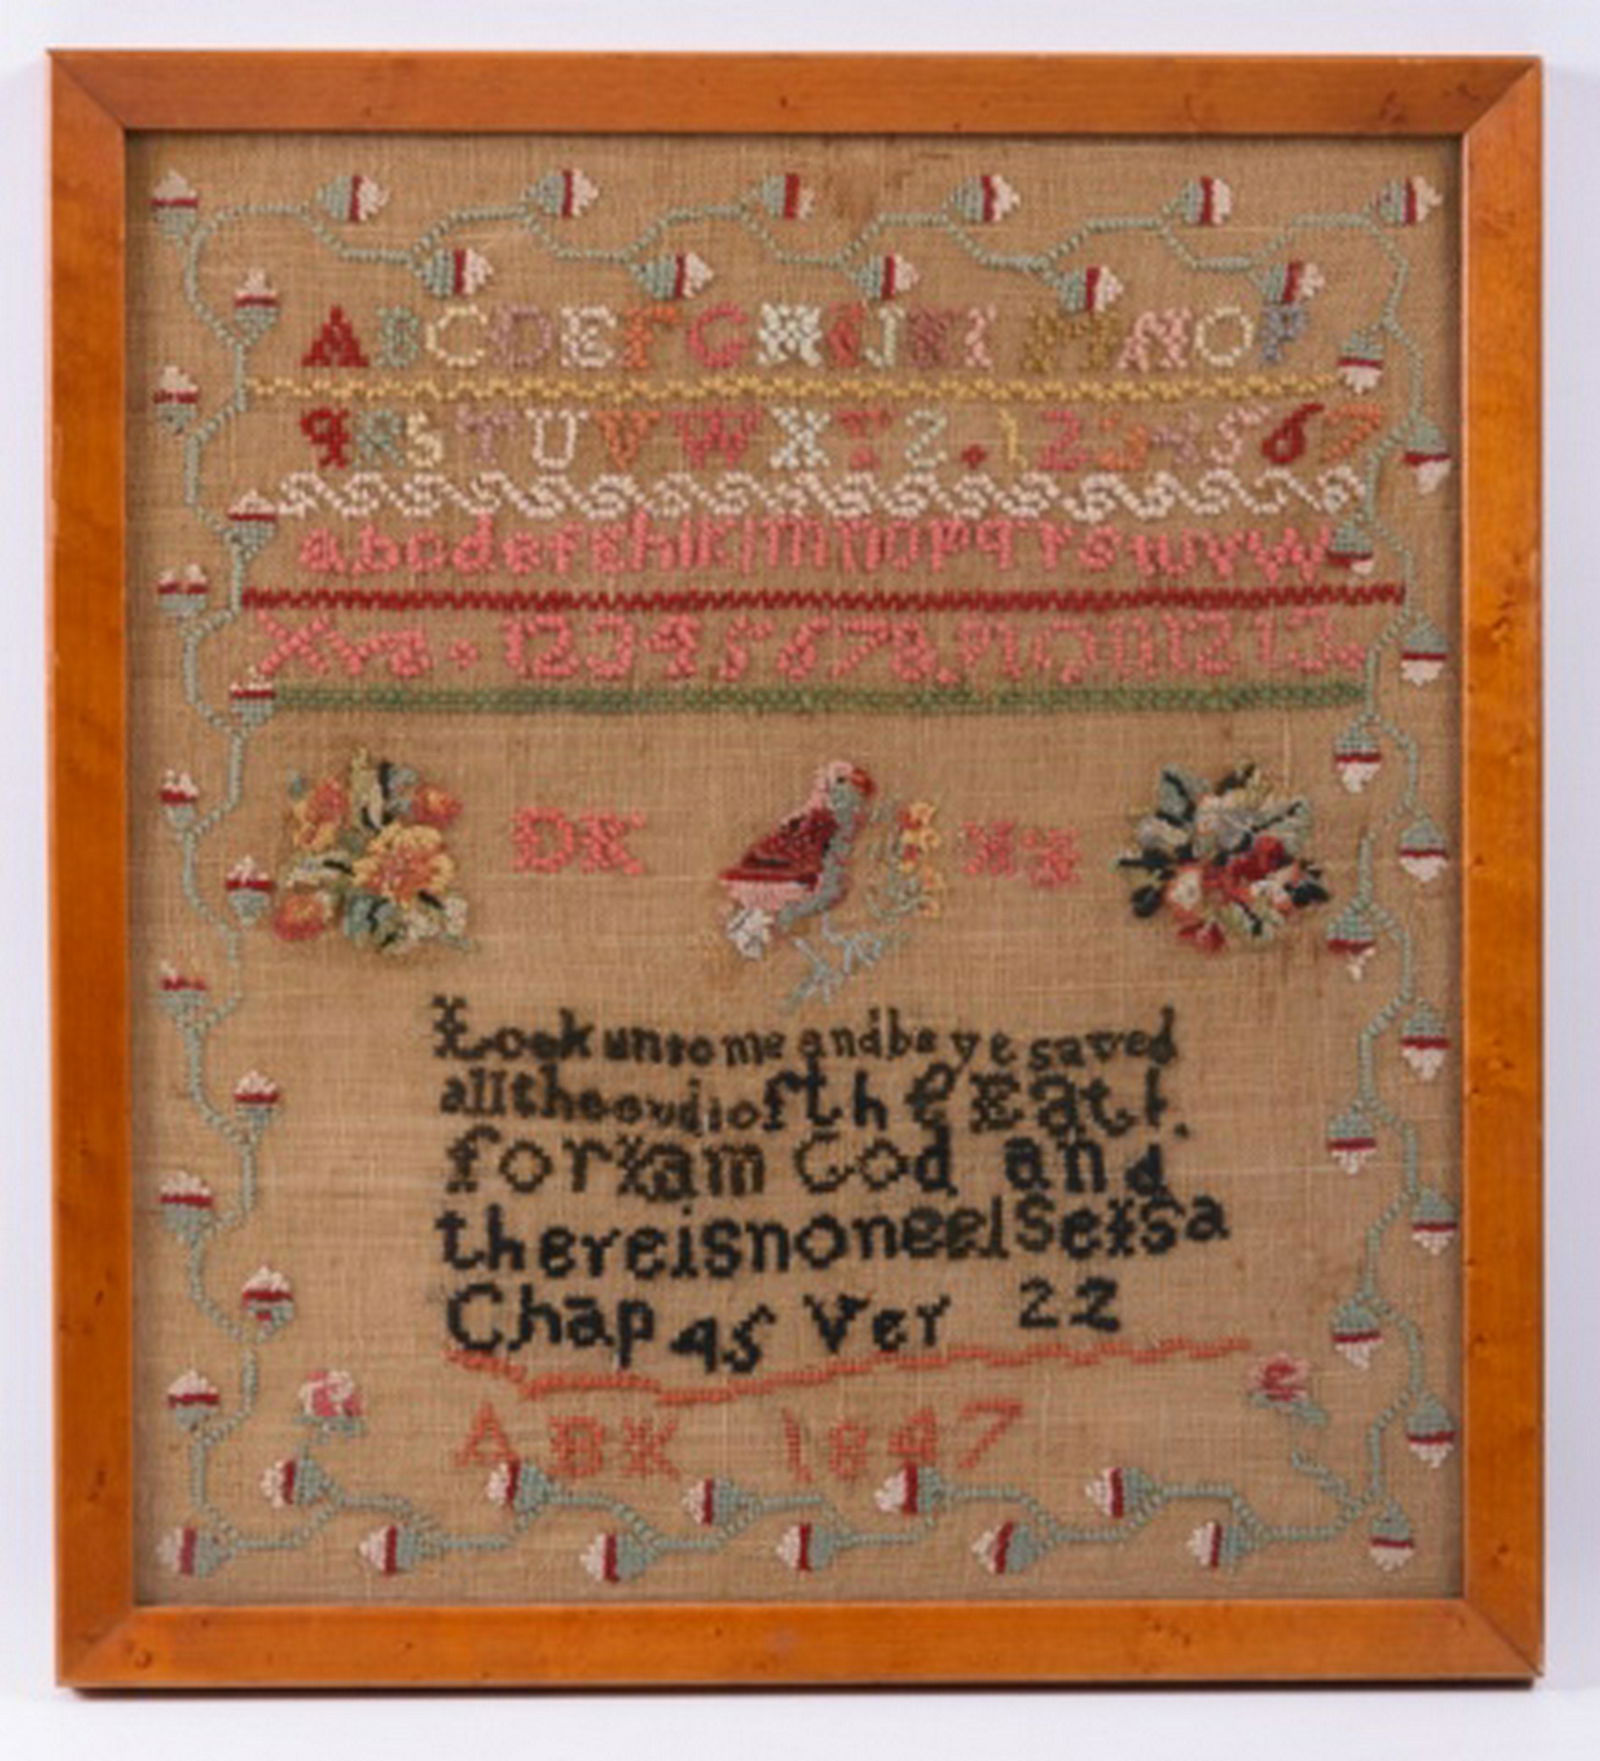 ABCDEFGHIJKL MNOP
qRSTUVWXYZ.1234567
abcdefghiklmnopqrstuvw
Xyz.12345678.910111213.
DK
Look unto me and be ye saved
all the of the Eart.
for I am God and
thereisnoneelseIsa
Chap 45 Ver 22
ABK 1847